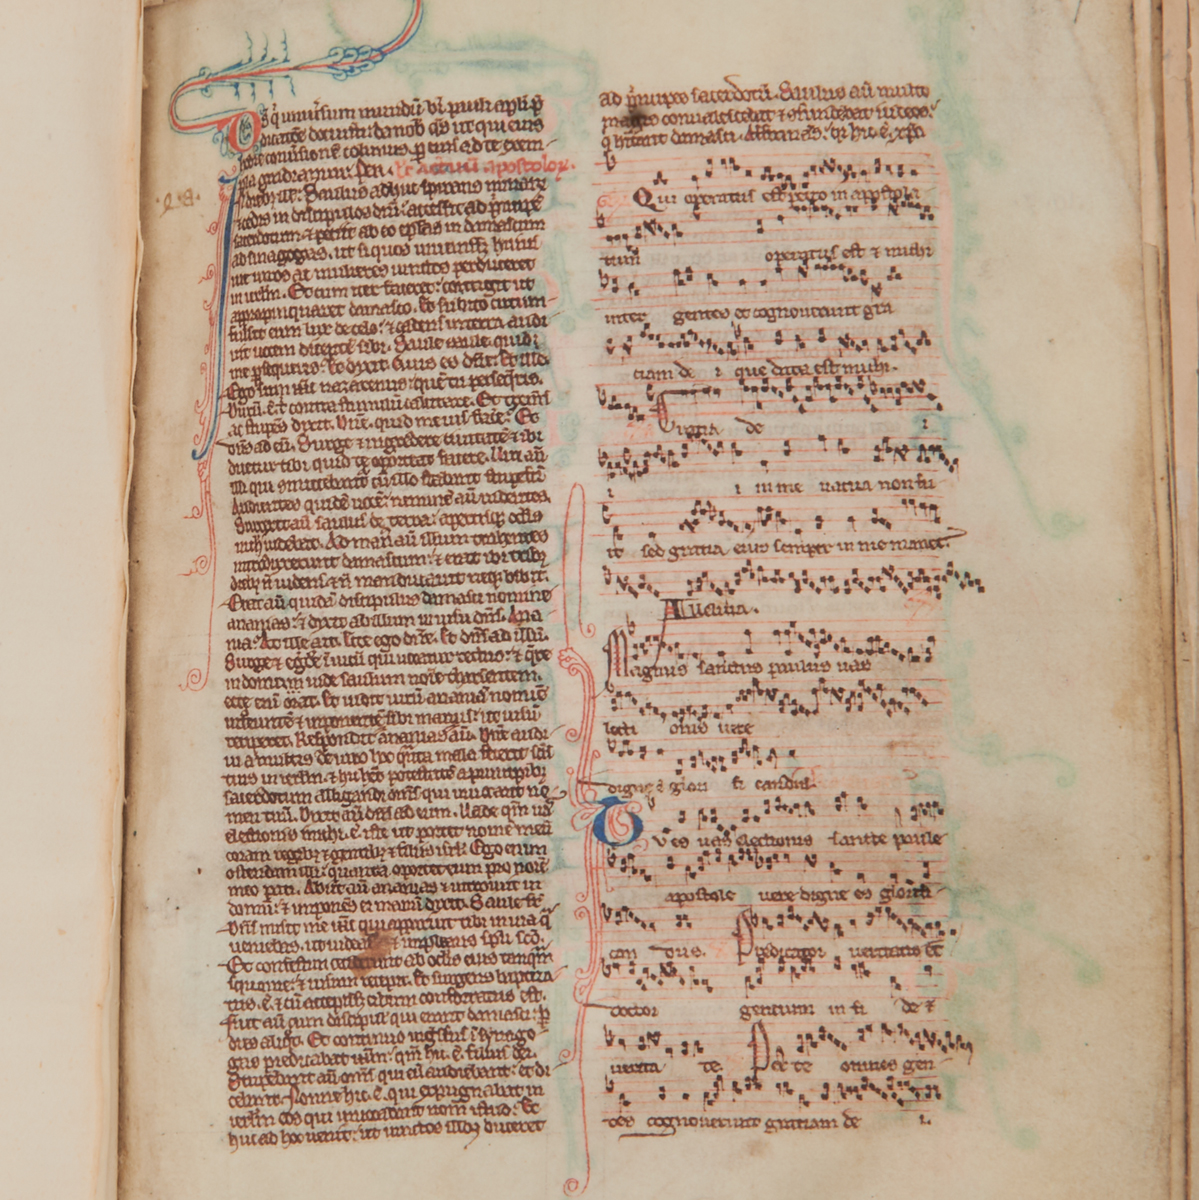 Ds q' universum mundum bi' pauli apli p'
dicatione docuisti: da nob' qs ut qui eius
hodie conversione colimus p eius ad te exem
pla gradiamur. per. Lc actuum apostolor.
In dieb' ill': Saulus adhuc spirans minarum
& cedis in discipulos dni: accessit ad principe
sacerdotum & petiit ab eo epistolas in damascum
ad sinagogas. ut si quos invenisset huius
vie viros ac mulieres vinctos perduceret
in ierlm. Et cum iter faceret: contigit ut
appropinquaret damasco. Et subito circum
fulsit eum lux de celo: & cadens in terra audi
vit vocem dicentem sibi. Saule saule quid
me persequeris. Et dixit. Quis es dne. Et ille.
Ego sum ihc nazarenus: quem tu persequeris.
Durum e t contra stimulum calcitrare. Et tremens
ac stupens dixit. Dne. quid me vis facere. Et
dns ad eum. Surge & ingredere civitate & ibi
dicetur tibi quid te oporteat facere. Viri aut
illi qui comitabantur cum illo stabant stupefacti
audientes quidem voce: neminem aut videntes.
Surrexit aut saulus de terra: apertisque oculis
nichil videbat. Ad manus aut illum trahentes
introduxerunt damascum: & erat ibi tribus
dieb' non videns & non manducavit neque bibit.
Erat aut quidam discipulus damasci nomine
ananias: & dixit ad illum in visu dns. Ana
nia. At ille ait. Ecce ego dne. Et dns ad illum.
Surge & in vicum qui vocatur rectus: & quere
in domo iude saulum noie tharsensem.
ecce enim orat. Et vidit virum anania nomine
introeunte & imponentem sibi manus: ut visum
recipiat. Respondit ananias aut. Dne audi
vi a multis de viro hoc quanta mala fecerit scis
tuis in ierlm. & hic habet potestatem a principibus
sacerdotum alligandi omnes qui invocant no
men tuum. Dixit aut dns ad eum. Vade qm vas
electionis michi e iste ut portet nomen meum
coram regibus & gentibus & filiis isrl. Ego enim
ostendam illi: quanta oporteat eum pro noie
meo pati. Abiit aut ananias & introivit in
domum: & imponens ei manum dixit. Saule frater
dns misit me ihc qui apparuit tibi in via qua
veniebas. ut videas & implearis spu sco.
Et confestim ceciderunt ab oculis eius tanquam
squame: & visum recepit. Et surgens baptiza
tus e. & cum accepisset cibum confortatus est.
Fuit aut cum discipulis qui erant damasci: p
dies aliquot. Et continuo ingressus i sinago
gas predicabat ihm: qm hic e filius dei.
Stupebant aut omnes qui eum audiebant: et di
cebant. Nonne hic e qui expugnabat in
ierlm eos qui invocabant nomen istud: Et
huc ad hoc venit: ut vinctos illos duceret
ad principes sacerdotum. Saulus aut multo
magis convalescebat & confundebat iudeos
q habitant damasci. Affirmans qr hic e xps.
Qui operatus est petro in apostola
tum operatus est & michi
inter gentes et cognoverunt gra
ciam de i que data est michi.
Gratia de i
i in me vacua non fu
it sed gratia eius semper in me manet.
Alleluia.
Magnus sanctus paulus vas
lecti onis vere
digne & glori fi candus.
Tu es vas electionis sancte paule
apostole vere digne es glorifi
can dus. Predicator veritatis et
doctor gentium in fi de &
verita te. Per te omnes gen
tes cognoverunt gratiam de i.